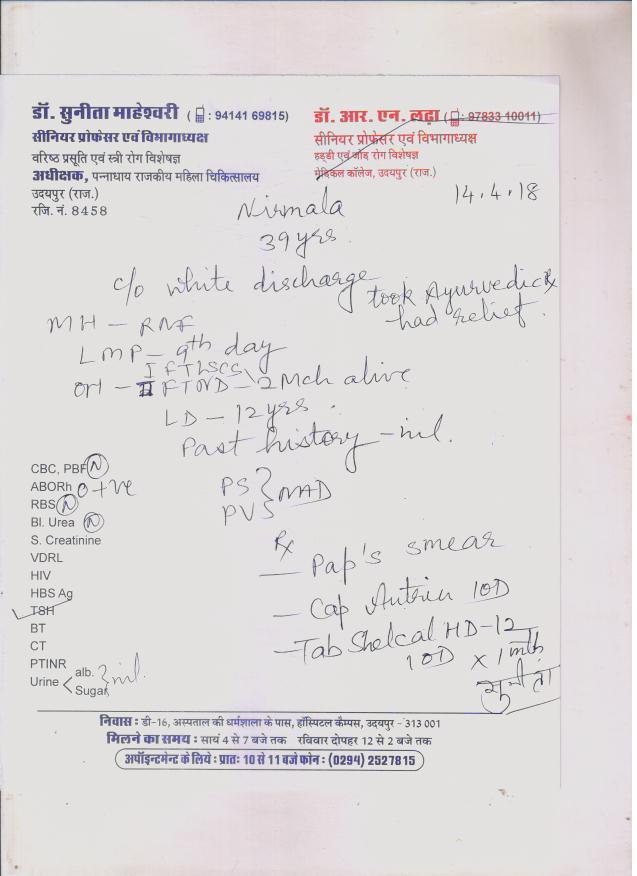 डॉ. सुनीता माहेश्वरी ( : 94141 69815)
सीनियर प्रोफेसर एवं विभागाध्यक्ष
वरिष्ठ प्रसूति एवं स्त्री रोग विशेषज्ञ
अधीक्षक, पन्नाधाय राजकीय महिला चिकित्सालय
उदयपुर (राज.)
रजि. नं. 8458
डॉ. आर. एन. लढ़ा ( : 97833 10011)
सीनियर प्रोफेसर एवं विभागाध्यक्ष
हड्डी एवं जोड़ रोग विशेषज्ञ
मेडिकल कॉलेज, उदयपुर (राज.)
14.4.18
Nirmala
39 yrs.
c/o white discharge took Ayurvedic Rx
had relief.
MH - RNF
LMP - 9th day
I FTLSCS
OH - II FTND - 2 Mch alive
LD - 12 yrs.
Past history - nil.
CBC, PBF N
ABORh O+ve
RBS N
Bl. Urea N
S. Creatinine
VDRL
HIV
HBS Ag
TSH
BT
CT
PTINR
Urine alb. nil.
Sugar
PS NAD
PVS
Rx
- Pap's smear
- Cap 10D
- Tab Shelcal HD-12
10D x 1 mth
सुनीता
निवास : डी-16, अस्पताल की धर्मशाला के पास, हॉस्पिटल कैम्पस, उदयपुर - 313 001
मिलने का समय : सायं 4 से 7 बजे तक रविवार दोपहर 12 से 2 बजे तक
अपॉइन्टमेन्ट के लिये : प्रातः 10 से 11 बजे फोन : (0294) 2527815